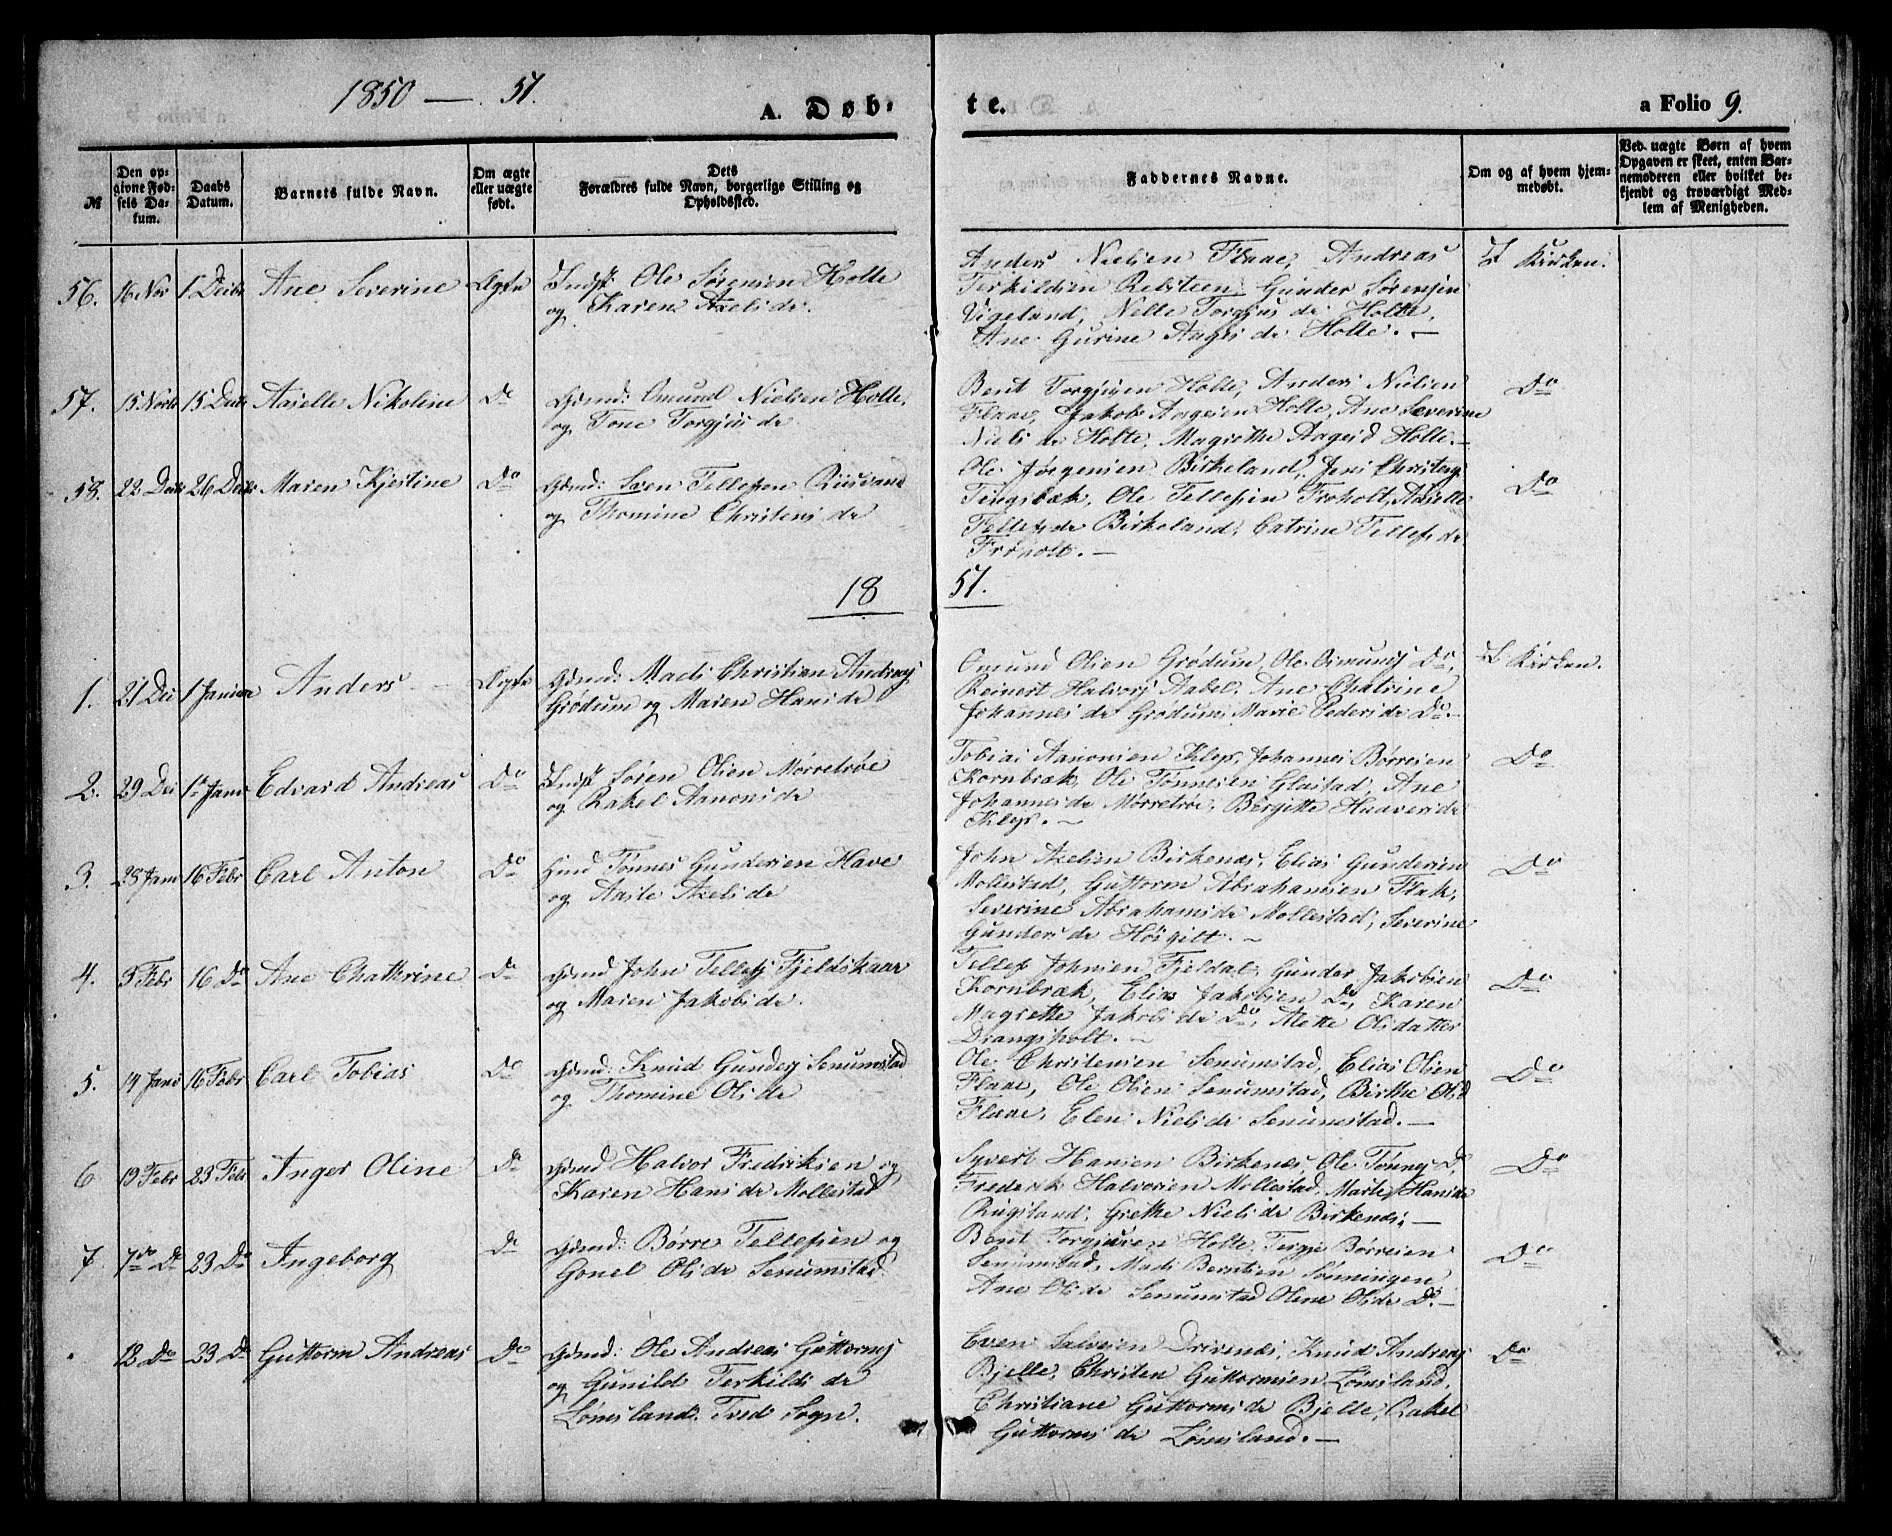 1850 — 51.
A. Døb-
te.
a Folio 9.
№
Den op-
givne Fød-
sels Da-
tum.
Daabs
Datum.
Barnets fulde Navn.
Om ægte
eller uægte
født.
Dets
Forældres fulde Navn, borgerlige Stilling og
Opholdssted.
Faddernes Navne.
Om og af hvem hjem-
medøbt.
Ved uægte Børn af hvem
Opgaven er skeet, enten Bar-
nemoderen eller hvilket be-
kjendt og troværdigt Med-
lem af Menigheden.
56. 16 Nov 1 Decbr Ane Severine Ægte Indst Ole Sørensen Holte
og Karen Axels dr.
Anders Nielsen Flaae, Andreas
Terkildsen Rebsteen, Gunder Sørensen
Vigeland, Nelle Torgjus dr Holte,
Ane Gurine Aages dr Holte. —
I Kirken.
57. 15 Novbr 15 Decbr Aaselle Nikoline Do Gdmd: Omund Nielsen Holte,
og Tone Torgjus dr
Bent Torgjusen Holte, Anders Nielsen
Flaae, Jakob Aagesen Holte, Ane Severine
Niels dr Holte, Magrethe Aages d Holte. —
Do
58. 22 Decbr 26 Decbr Maren Kjestine Do Gdmd: Sven Tellefsen Riisvand
og Thomine Christens dr
Ole Jørgensen Birkeland, Jens Christens
Tingsbæk, Ole Tellefsen Frøholt, Aaselle
Tellefs dr Birkeland, Catrine Tellefs dr
Frøholt. —
Do
18 51.
1. 21 Dec 1 Januar Anders Ægte Gdmd: Mads Christian Andreas
Grødum og Maren Hans dr
Omund Olsen Grødum, Ole Osmunds Do,
Reinert Halvors Aabel, Ane Chatrine
Johannes dr Grødum, Marie Peders dr Do. —
I Kirken.
2. 29 Dec 1 Janr Edvard Andreas Do Indst Søren Olsen Mørretrøe
og Rakel Aanons dr
Tobias Aanonsen Klep, Johannes Børresen
Kornbræk, Ole Tønnesen Glastad, Ane
Johannes dr Mørretrøe, Birgitte Haavers dr
Klep. —
Do
3. 28 Jan 16 Febr Carl Anton Do Hmd Tønnes Gundersen Have
og Aasle Axels dr
John Axelsen Birkenæs, Elias Gundersen
Mollestad, Guttorm Abrahamsen Flak,
Severine Abrahams dr Mollestad, Severine
Gunders dr Høigilt. —
Do
4. 5 Febr 16 Do Ane Chathrine Do Gdmd John Tellefs Fjeldskaar
og Maren Jakobs dr.
Tellef Johnsen Fjeldal, Gunder Jakobsen
Kornbræk, Elias Jakobsen Do, Karen
Magrethe Jakobs dr Do, Mette Olsdatter
Drangsholt. —
Do
5. 14 Janr 16 Febr Carl Tobias Do Gdmd: Knud Gunders Senumstad
og Thomine Ols dr
Ole Christensen Senumstad, Elias Olsen
Flaae, Ole Olsen Senumstad, Birthe Ols d
Flaae, Elen Niels dr Senumstad. —
Do
6 19 Febr 23 Febr Inger Oline Do Gdmd Halvor Fredriksen og
Karen Hans dr Mollestad
Syvert Hansen Birkenæs, Ole Tønnes Do,
Frederik Halvorsen Mollestad, Marte Hans dr
Rugsland, Grethe Niels dr Birkenæs, —
Do
7 7de Do 23 Do Ingeborg Do Gdmd: Børre Tellefsen og
Gonel Ols dr Senumstad.
Bent Torgjusen Holte, Terje Børresen
Senumstad, Mads Berntsen Sønningen
Ane Ols dr Senumstad Olene Ols dr Do. —
Do
12 Do 23 Do Guttorm Andreas Do Gdmd: Ole Andreas Guttorms
og Gunild Terkilds dr
Lømsland, Tved Sogn.
Even Salvesen Drivenæs, Knud Andreas
Bjelle, Christen Guttormsen Lømsland,
Christiane Guttorms dr Bjelle, Rakel
Guttorms dr Lømsland. —
Do